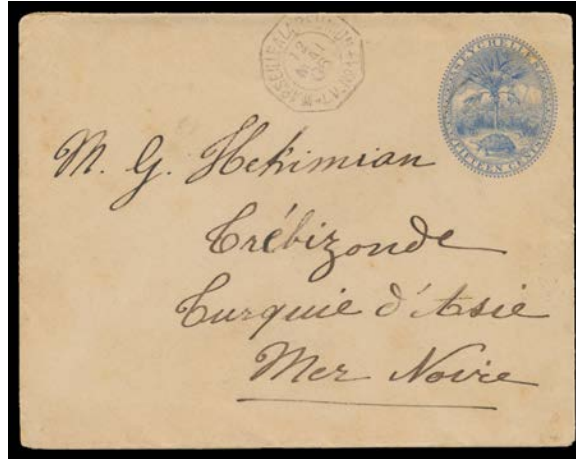 SEYCHELLES
FIFTEEN CENTS
12
MAI
M. G. Hekimian
Trébizonde
Turquie d'Asie
Mer Noire